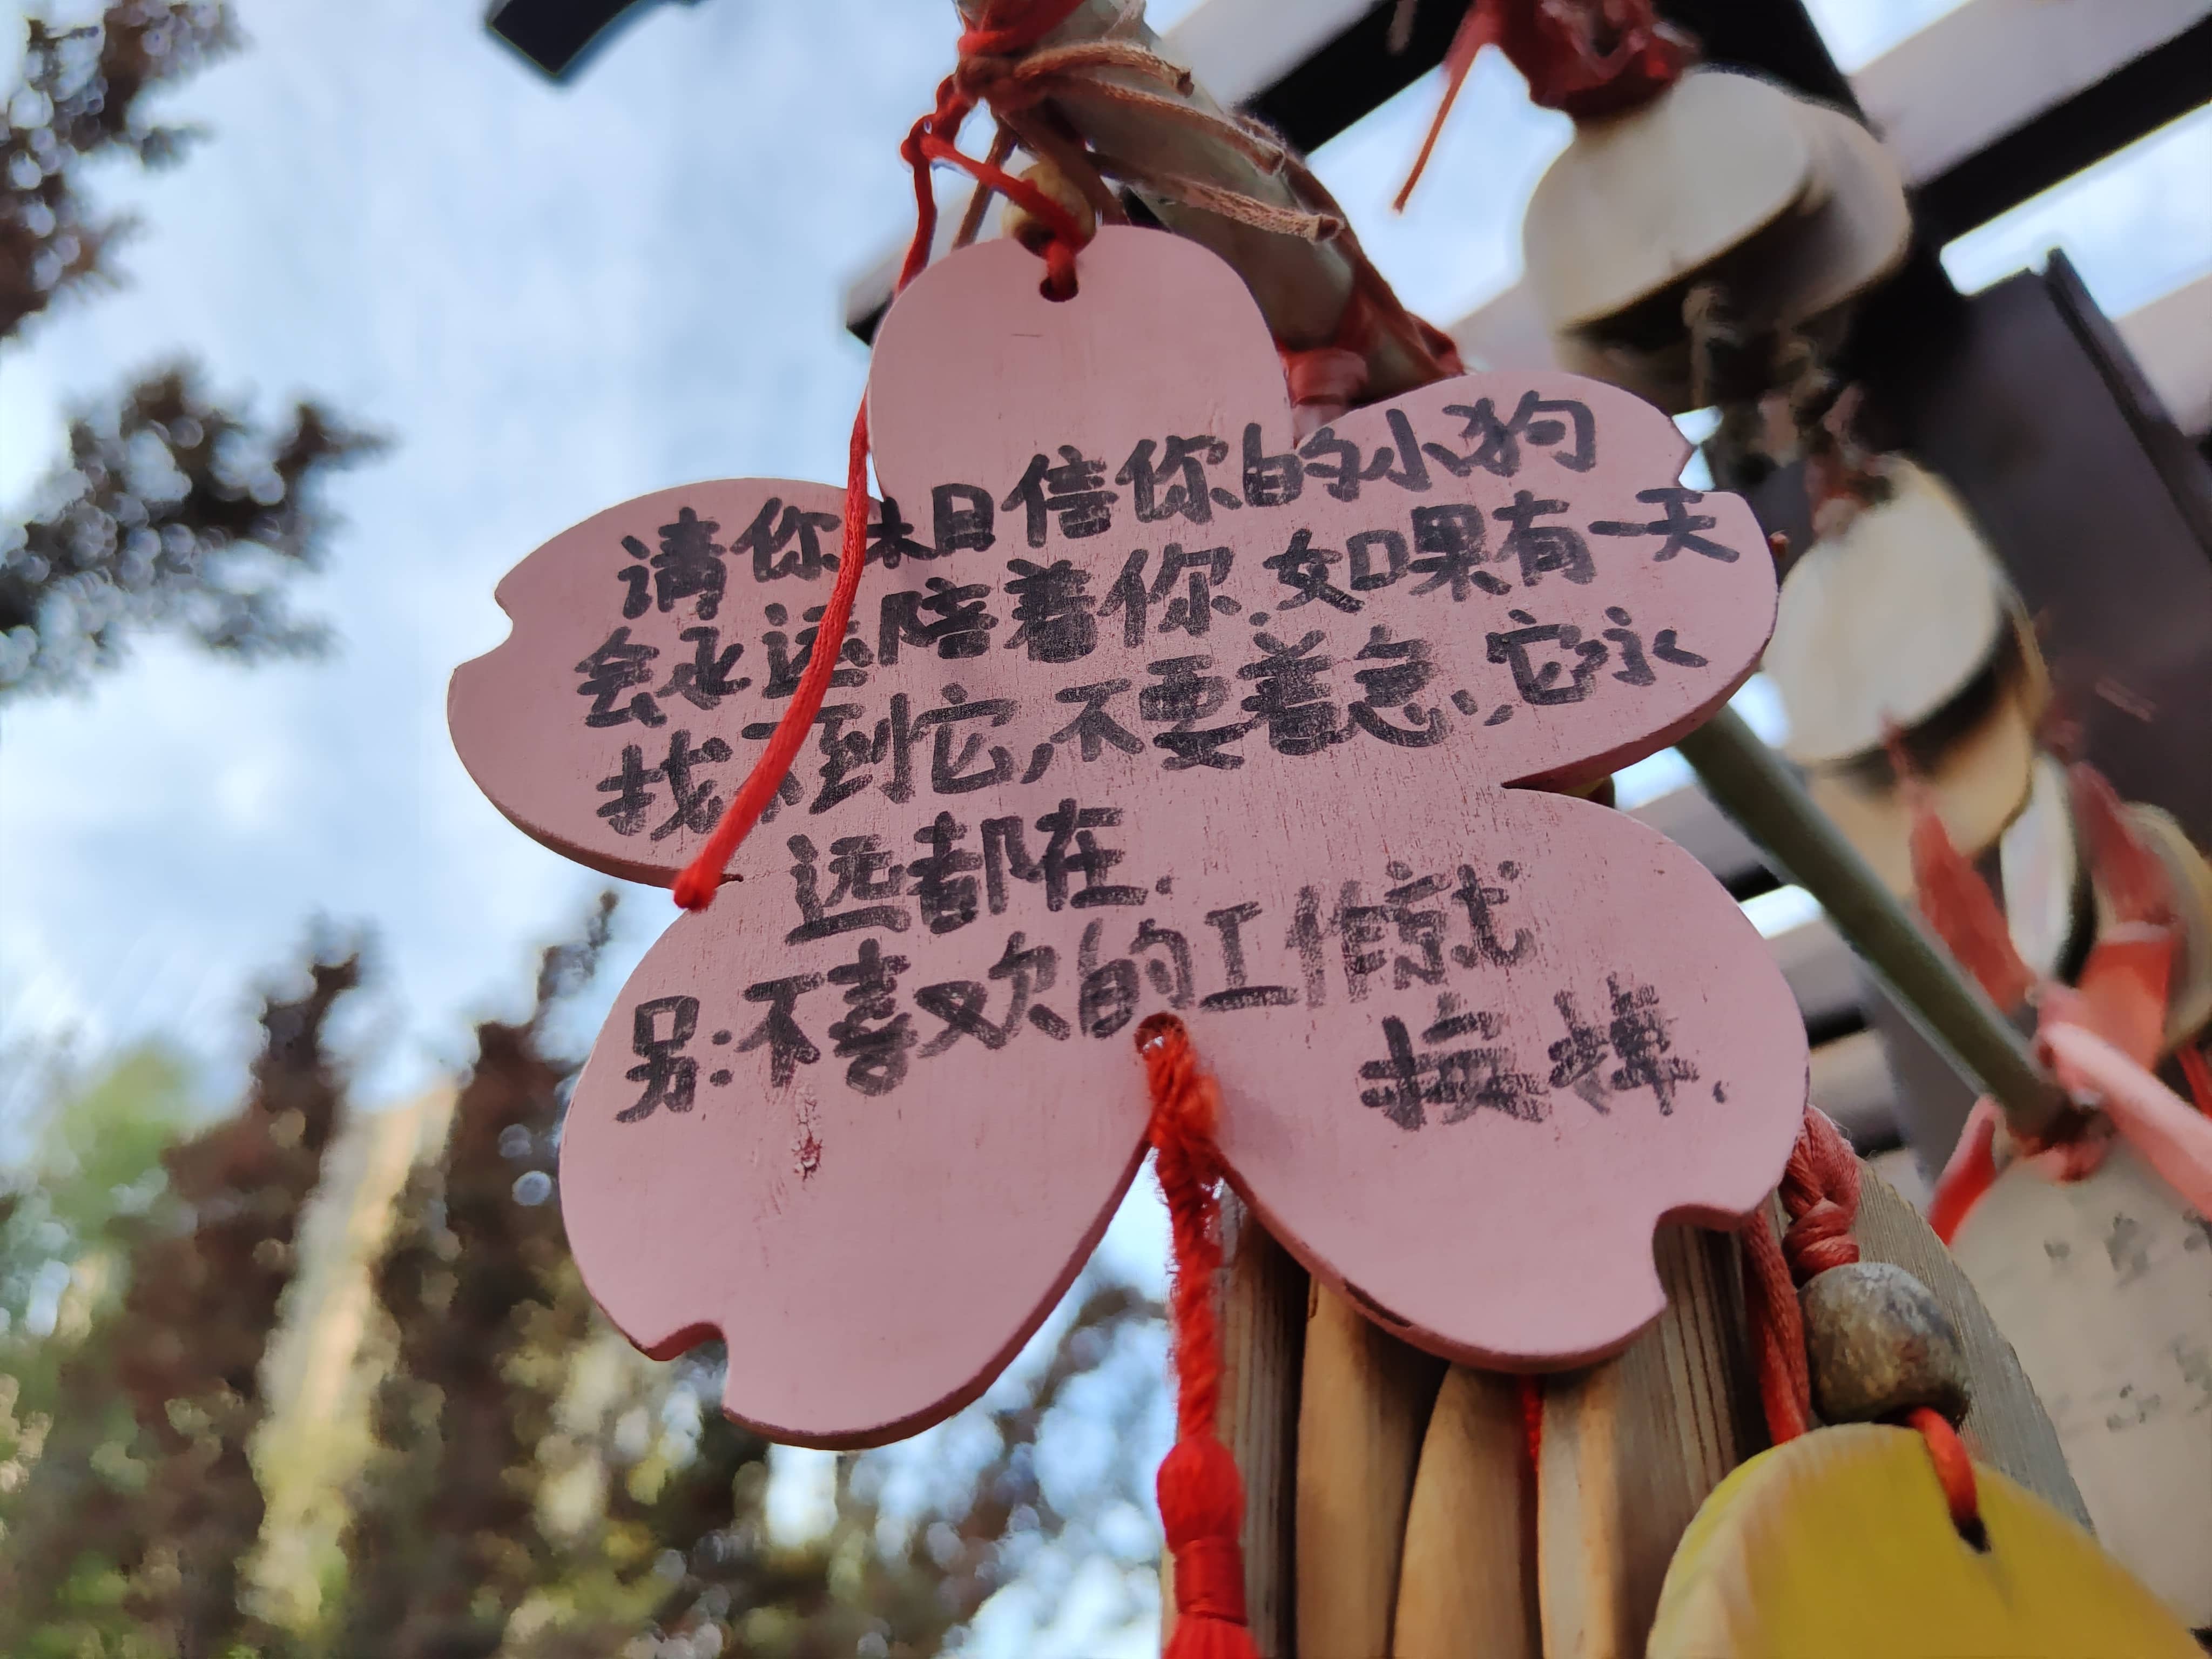 请你相信你的小狗
会永远陪着你.如果有一天
找不到它,不要着急,它永
远都在.
另:不喜欢的工作就
换掉.